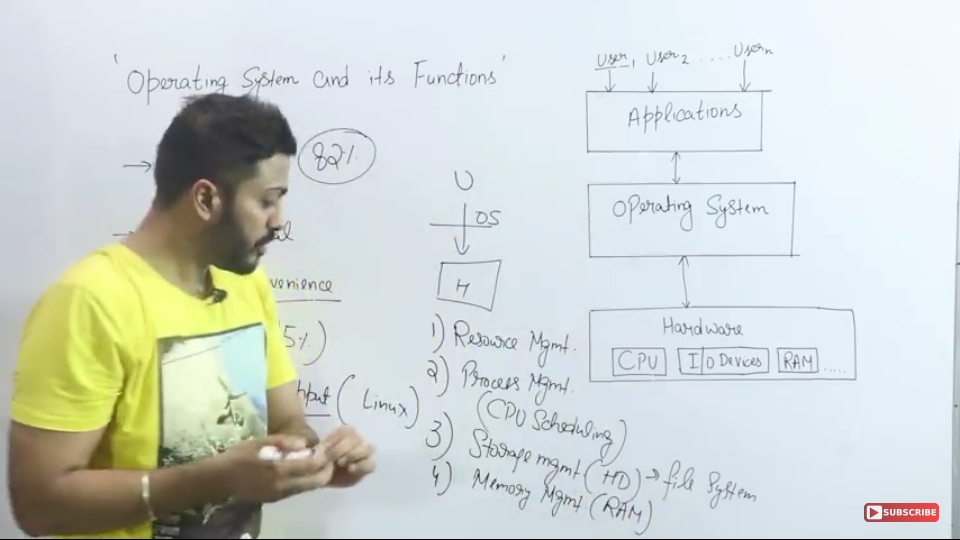 'Operating System and its Functions'
82%
venience
5%)
hput (Linux)
U
OS
H
1) Resource Mgmt.
2) Process Mgmt.
(CPU Scheduling)
3) Storage mgmt (HD) → file System
4) Memory Mgmt (RAM)
User1 User2 ..... Usern
Applications
Operating System
Hardware
CPU I/O Devices RAM .....
SUBSCRIBE